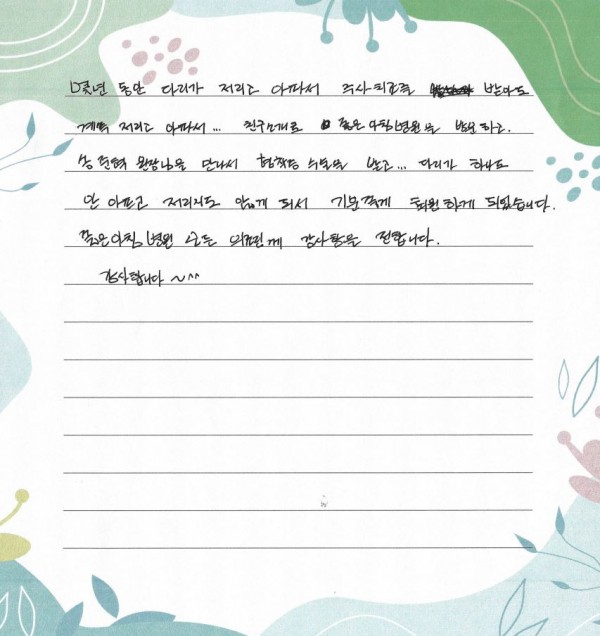 몇년 동안 다리가 저리고 아파서 주사치료를 받아도
계속 저리고 아파서... 친구소개로 젊은아침병원을 방문하고.
송준혁 원장님을 만나서 협착증 수술을 받고... 다리가 하나도
안 아프고 저리지도 않게 되서 기분좋게 퇴원하게 되었습니다.
젊은아침병원 모든 의료진께 감사함을 전합니다.
감사합니다~^^